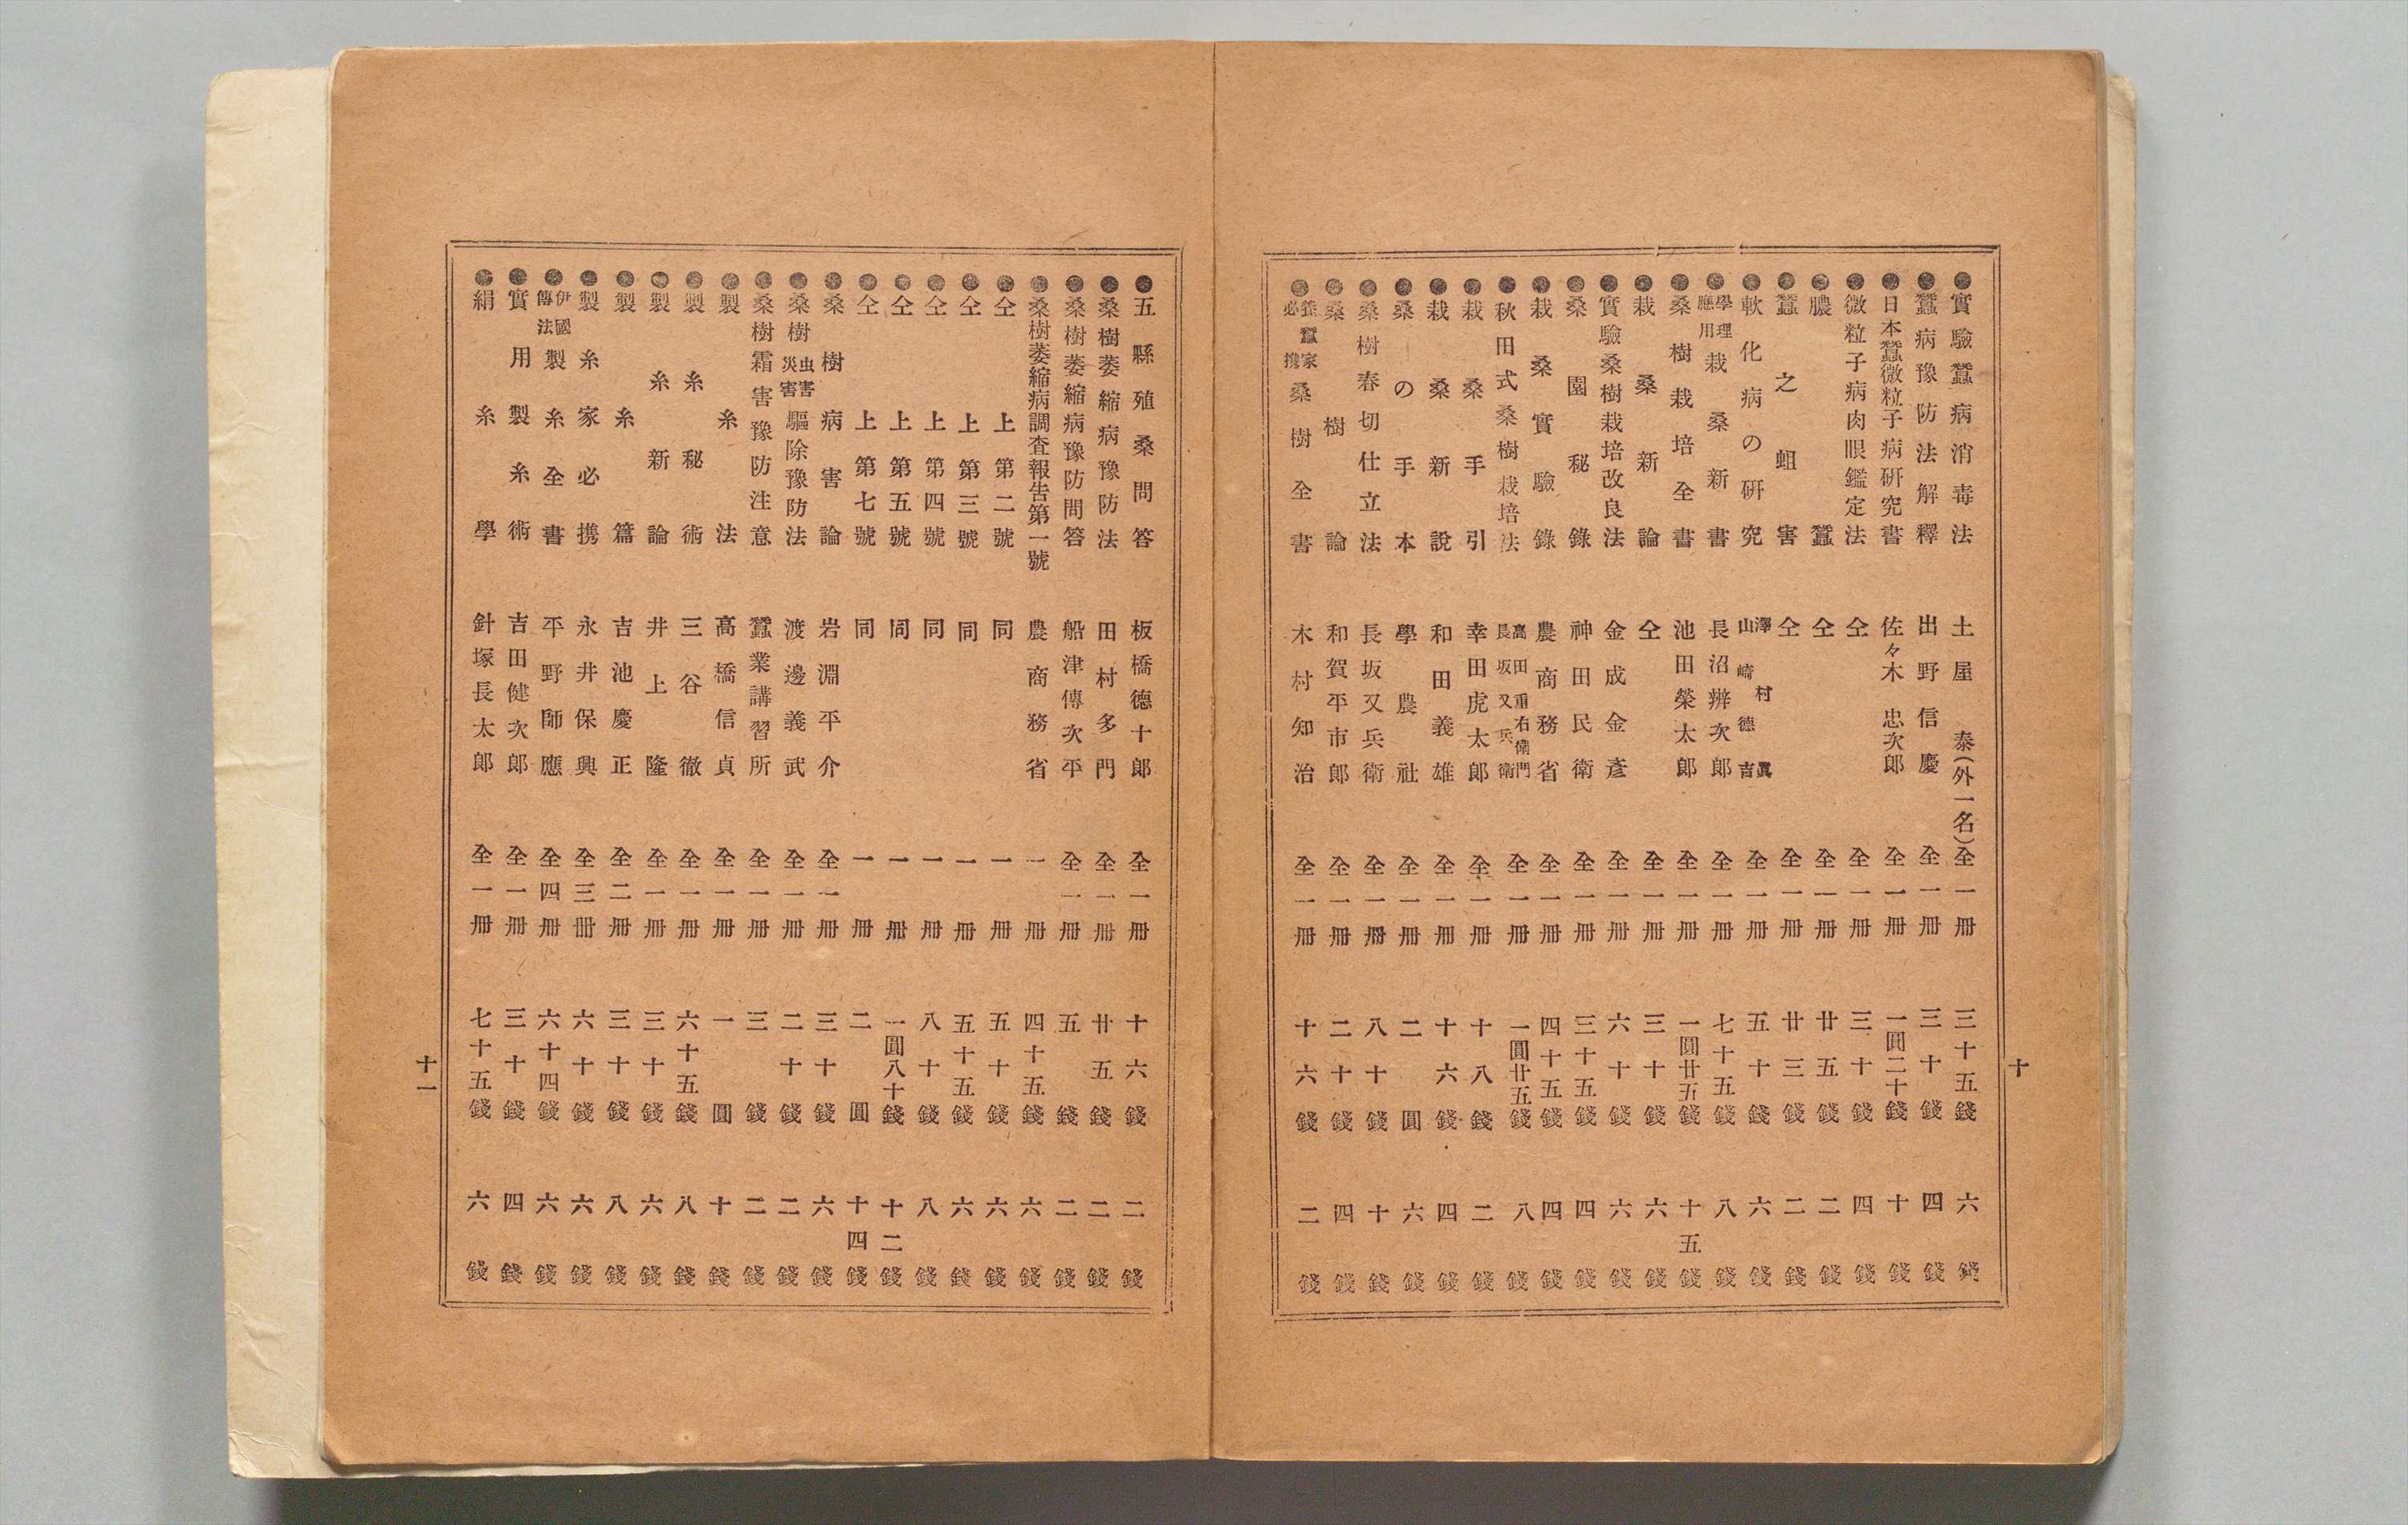 ●實驗蠶病消毒法 土屋泰(外一名) 全一冊 三十五錢 六錢
●蠶病豫防法解釋 出野信慶 全一冊 三十錢 四錢
●日本蠶微粒子病硏究書 佐々木忠次郎 全一冊 一圓二十錢 十錢
●微粒子病肉眼鑑定法 仝 全一冊 三十錢 四錢
●膿蠶 仝 全一冊 廿五錢 二錢
●蠶之蛆害 仝 全一冊 廿三錢 二錢
●軟化病の硏究 澤村眞 山崎德吉 全一冊 五十錢 六錢
●學理應用栽桑新書 長沼辨次郎 全一冊 七十五錢 八錢
●桑樹栽培全書 池田榮太郎 全一冊 一圓廿五錢 十五錢
●栽桑新論 仝 全一冊 三十錢 六錢
●實驗桑樹栽培改良法 金成金彥 全一冊 六十錢 六錢
●桑園秘錄 神田民衛 全一冊 三十五錢 四錢
●栽桑實驗錄 農商務省 全一冊 四十五錢 四錢
秋田式桑樹栽培法 高田重右衛門 長坂又兵衛 全一冊 一圓廿五錢 八錢
●栽桑手引 幸田虎太郎 全一冊 十八錢 二錢
●栽桑新說 和田義雄 全一冊 十六錢 四錢
●桑の手本 學農社 全一冊 二圓 六錢
●桑樹春切仕立法 長坂又兵衛 全一冊 八十錢 十錢
●桑樹論 和賀平市郎 全一冊 二十錢 四錢
●養蠶家必携桑樹全書 木村知治 全一冊 十六錢 二錢
十
●五縣殖桑問答 板橋德十郎 全一冊 十六錢 二錢
●桑樹萎縮病豫防法 田村多門 全一冊 廿五錢 二錢
●桑樹萎縮病豫防問答 船津傳次平 全一冊 五錢 二錢
●桑樹萎縮病調査報告第一號 農商務省 一冊 四十五錢 六錢
●仝上第二號 同 一冊 五十錢 六錢
●仝上第三號 同 一冊 五十五錢 六錢
●仝上第四號 同 一冊 八十錢 八錢
●仝上第五號 同 一冊 一圓八十錢 十二錢
●仝上第七號 同 一冊 二圓 十四錢
●桑樹病害論 岩淵平介 全一冊 三十錢 六錢
●桑樹虫害災害驅除豫防法 渡邊義武 全一冊 二十錢 二錢
●桑樹霜害豫防注意 蠶業講習所 全一冊 三錢 二錢
●製糸法 高橋信貞 全一冊 一圓 十錢
●製糸秘術 三谷徹 全一冊 六十五錢 八錢
●製糸新論 井上隆 全一冊 三十錢 六錢
●製糸篇 吉池慶正 全二冊 三十錢 八錢
●製糸家必携 永井保興 全三冊 六十錢 六錢
●伊國傳法製糸全書 平野師應 全四冊 六十四錢 六錢
●實用製糸術 吉田健次郎 全一冊 三十錢 四錢
●絹糸學 針塚長太郎 全一冊 七十五錢 六錢
十一